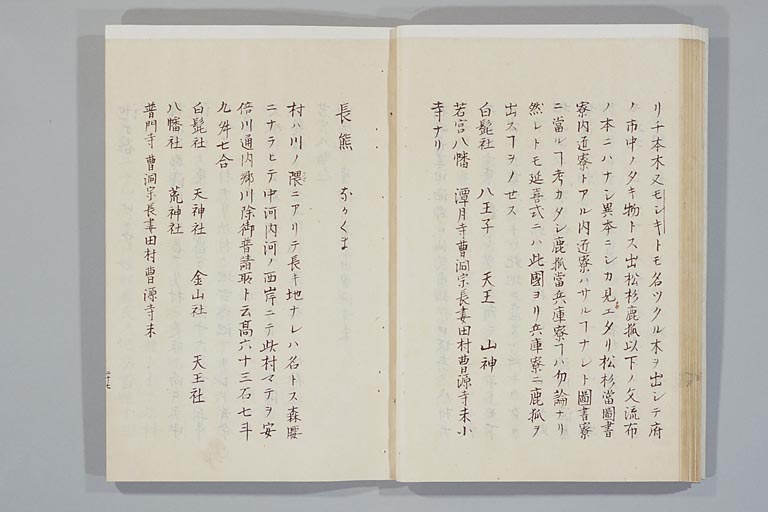 リ千本木又モシキトモ名ツクル木ヲ出シテ府
ノ市中ノタキ物トス出松杉鹿狐以下ノ文流布
ノ本ニハナシ異本ニシカ見エタリ松杉當圖書
寮内匠寮トアル内匠寮ハサルヿナレト圖書寮
ニ當ルヿ考カタシ鹿狐當兵庫寮ヿハ勿論ナリ
然レトモ延喜式ニハ此國ヨリ兵庫寮ニ鹿狐ヲ
出スヿヲノせス
白髭社 八王子 天王 山神
若宮八幡 潭月寺曹洞宗長妻田村曹源寺末小
寺ナリ
長熊 ながくま
村ハ川ノ隈ニアリテ長キ地ナレハ名トス森腰
ニナラヒテ中河内河ノ西岸ニテ此村マテヲ安
倍川通内郷川除御普請取ト云高六十三石七斗
九舛七合
白髭社 天神社 金山社 天王社
八幡社 荒神社
普門寺曹洞宗長妻田村曹源寺末